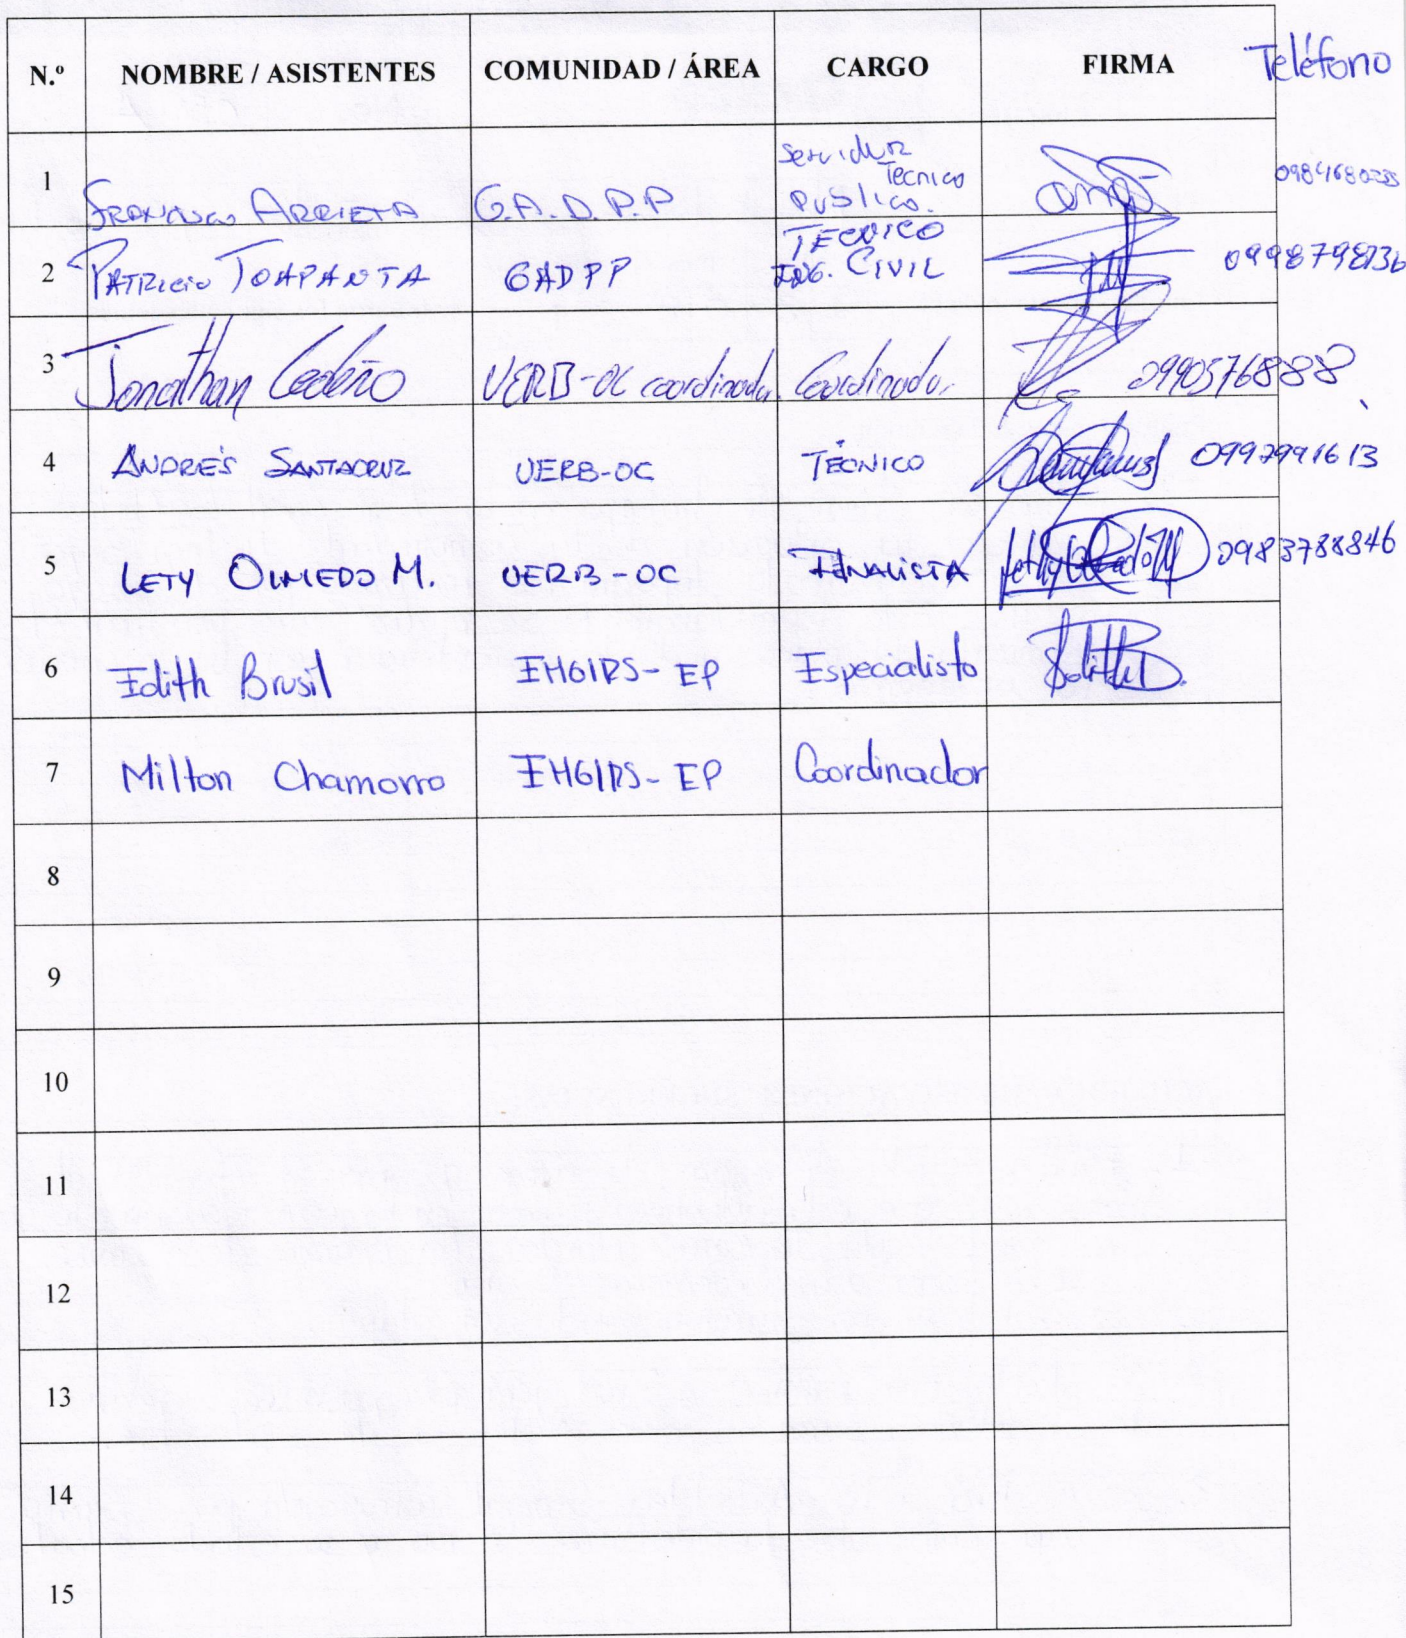 N.º NOMBRE / ASISTENTES COMUNIDAD / ÁREA CARGO FIRMA Teléfono
1 FRANCISCO ARRIETA G.A.D.P.P Servidor Técnico Público.
2 PATRICIO TOAPANTA GADPP TECNICO ING. CIVIL 0998798736
3 Jonathan Cedeño UERB-OC coordinador. Coordinador. 0990576888
4 ANDRÉS SANTACRUZ UERB-OC TÉCNICO 0997991613
5 LETY OLMEDO M. UERB-OC 0983788846
6 Edith Brusil EMGIRS-EP Especialista
7 Milton Chamorro EMGIRS-EP Coordinador
8
9
10
11
12
13
14
15